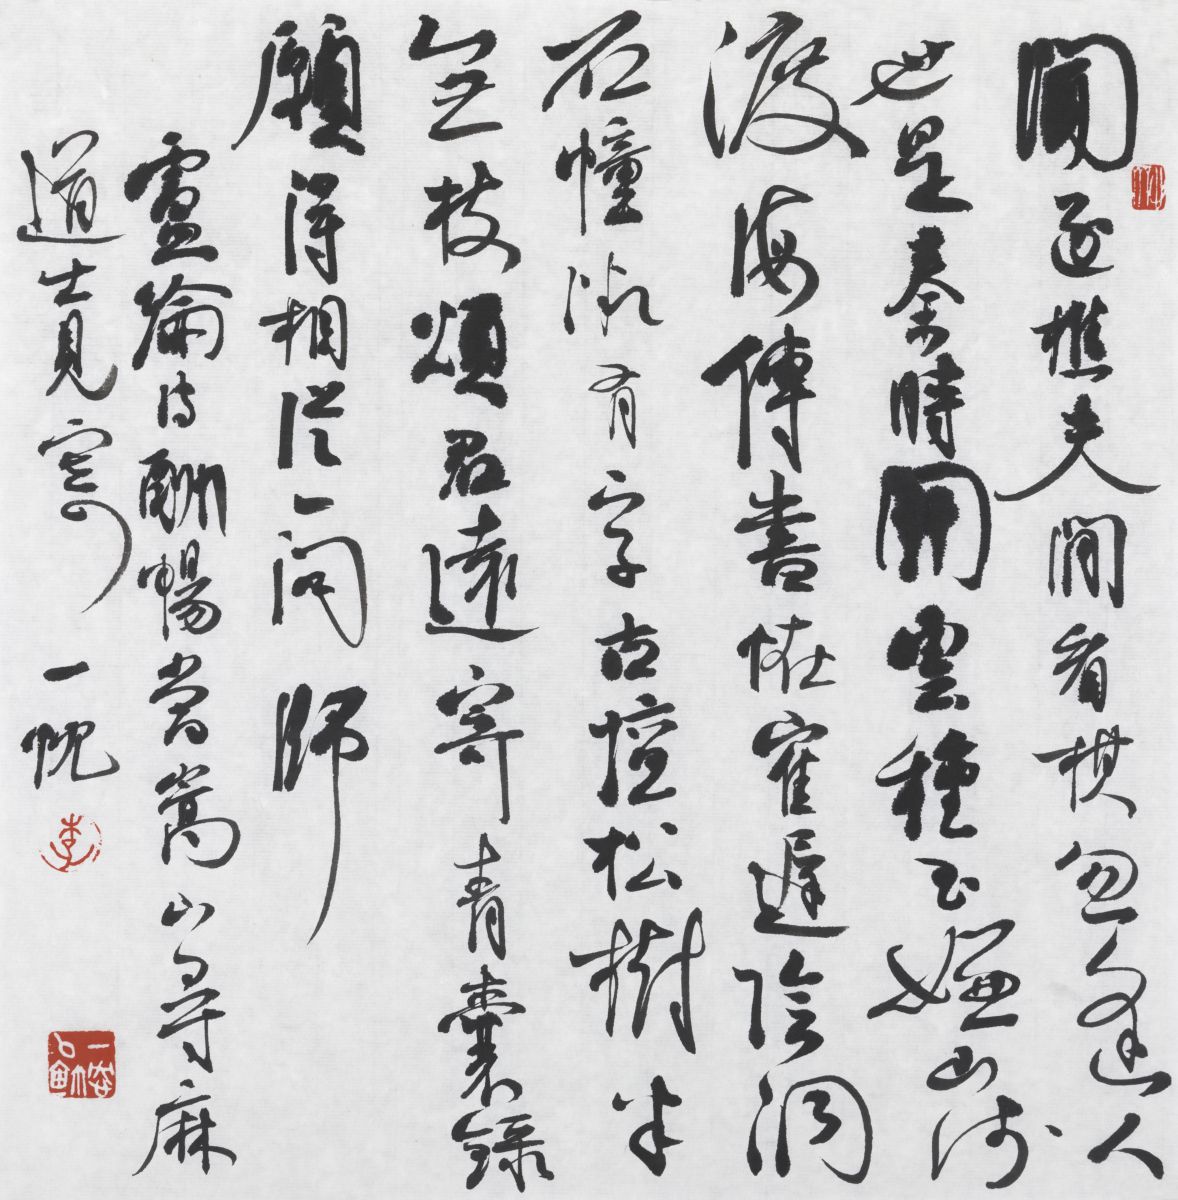 聞逐樵夫閒看棋忽逢人
世是秦時開雲種玉嫌山淺
渡海傳書怪隺遲陰洞
石幢微有字古壇松樹半
無枝煩君遠寄青囊錄
願得相從一問師
盧綸詩酬暢當嵩山尋麻
道士見寄 一
李